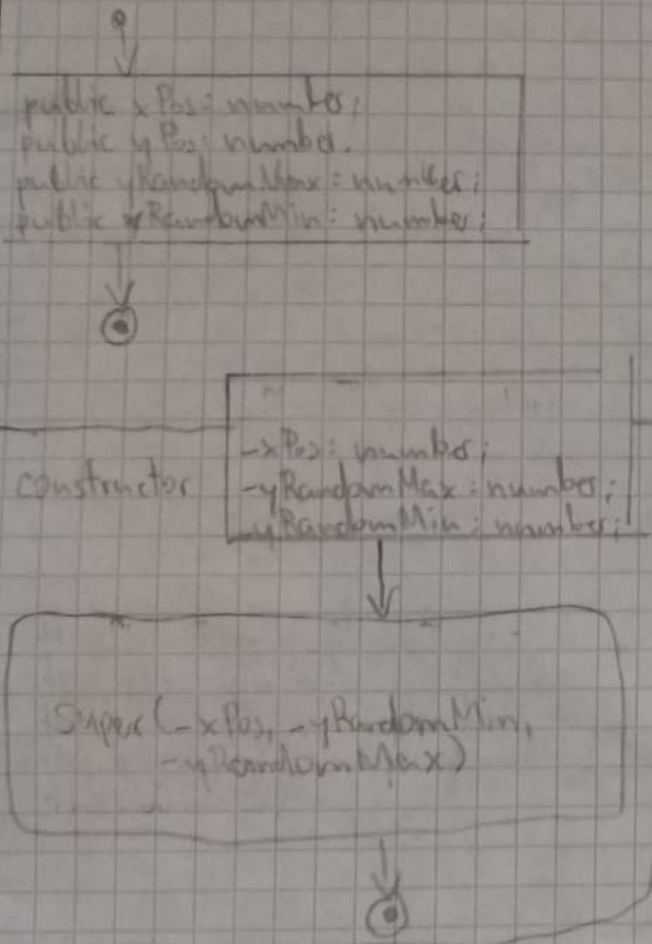 public xPos: number;
public yPos: number.
public yRandomMax: number;
public yRandomMin: number;
constructor
-xPos: number;
-yRandomMax: number;
-yRandomMin: number;
Super(-xPos, -yRandomMin,
-yRandomMax)